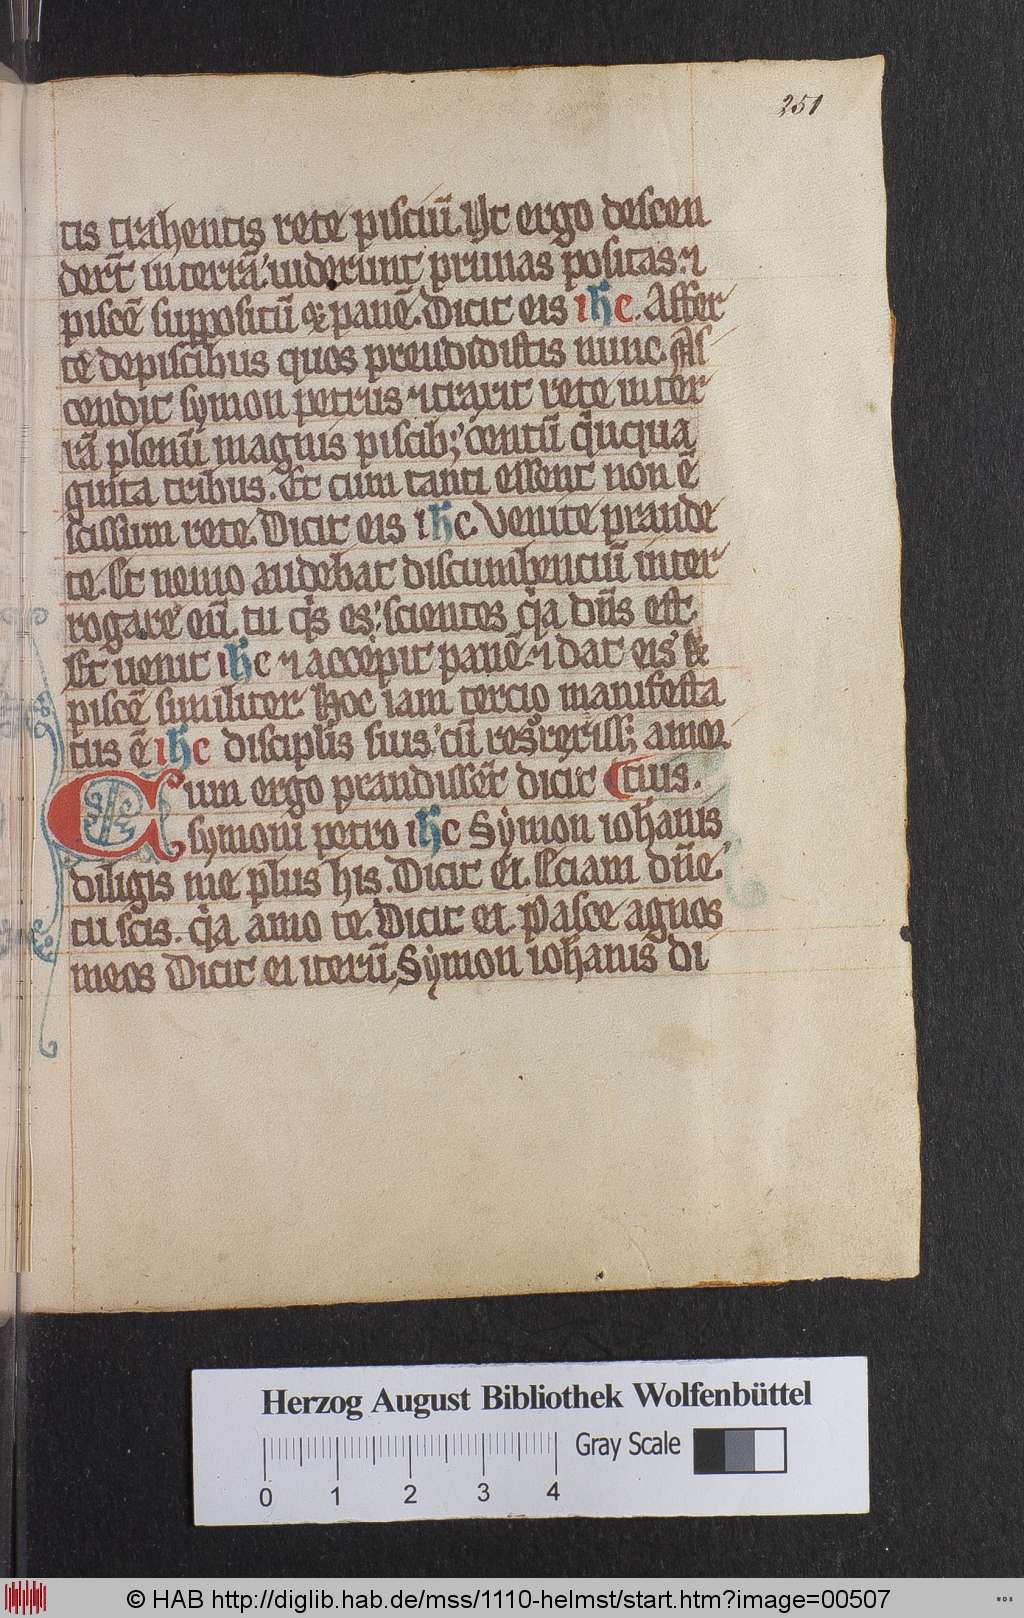 251
tis trahentis rete pisciū. Ut ergo descen
der̄t in terrā. uiderunt prunas positas. ⁊
piscē suppositū ⁊ panē. Dicit eis ihc. Affer
te de piscibus quos prendidistis nunc. As
cendit symon petrus ⁊ traxit rete in ter
rā plenū magnis piscib; centū qͥnqua
ginta tribus. Et cum tanti essent non ē
scissum rete. Dicit eis ihc. Venite prande
te. Et nemo audebat discumbentiū inter
rogare eū. tu qͥs es. scientes qͥa dn̄s est.
Et uenit ihc ⁊ accepit panē. ⁊ dat eis &
piscē similiter. Hoc iam tercio manifesta
tus ē ihc discipl̄is suis. cū resᵍreriss; a mor
Cum ergo prandissēt dicit tuis.
symoni petro ihc Symon iohanis
diligis me plus his. Dicit ei. Eciam dn̄e
tu scis. qͥa amo te. Dicit ei. Pasce agnos
meos Dicit ei iterū. Symon iohanis di
Herzog August Bibliothek Wolfenbüttel
Gray Scale
0 1 2 3 4
© HAB http://diglib.hab.de/mss/1110-helmst/start.htm?image=00507